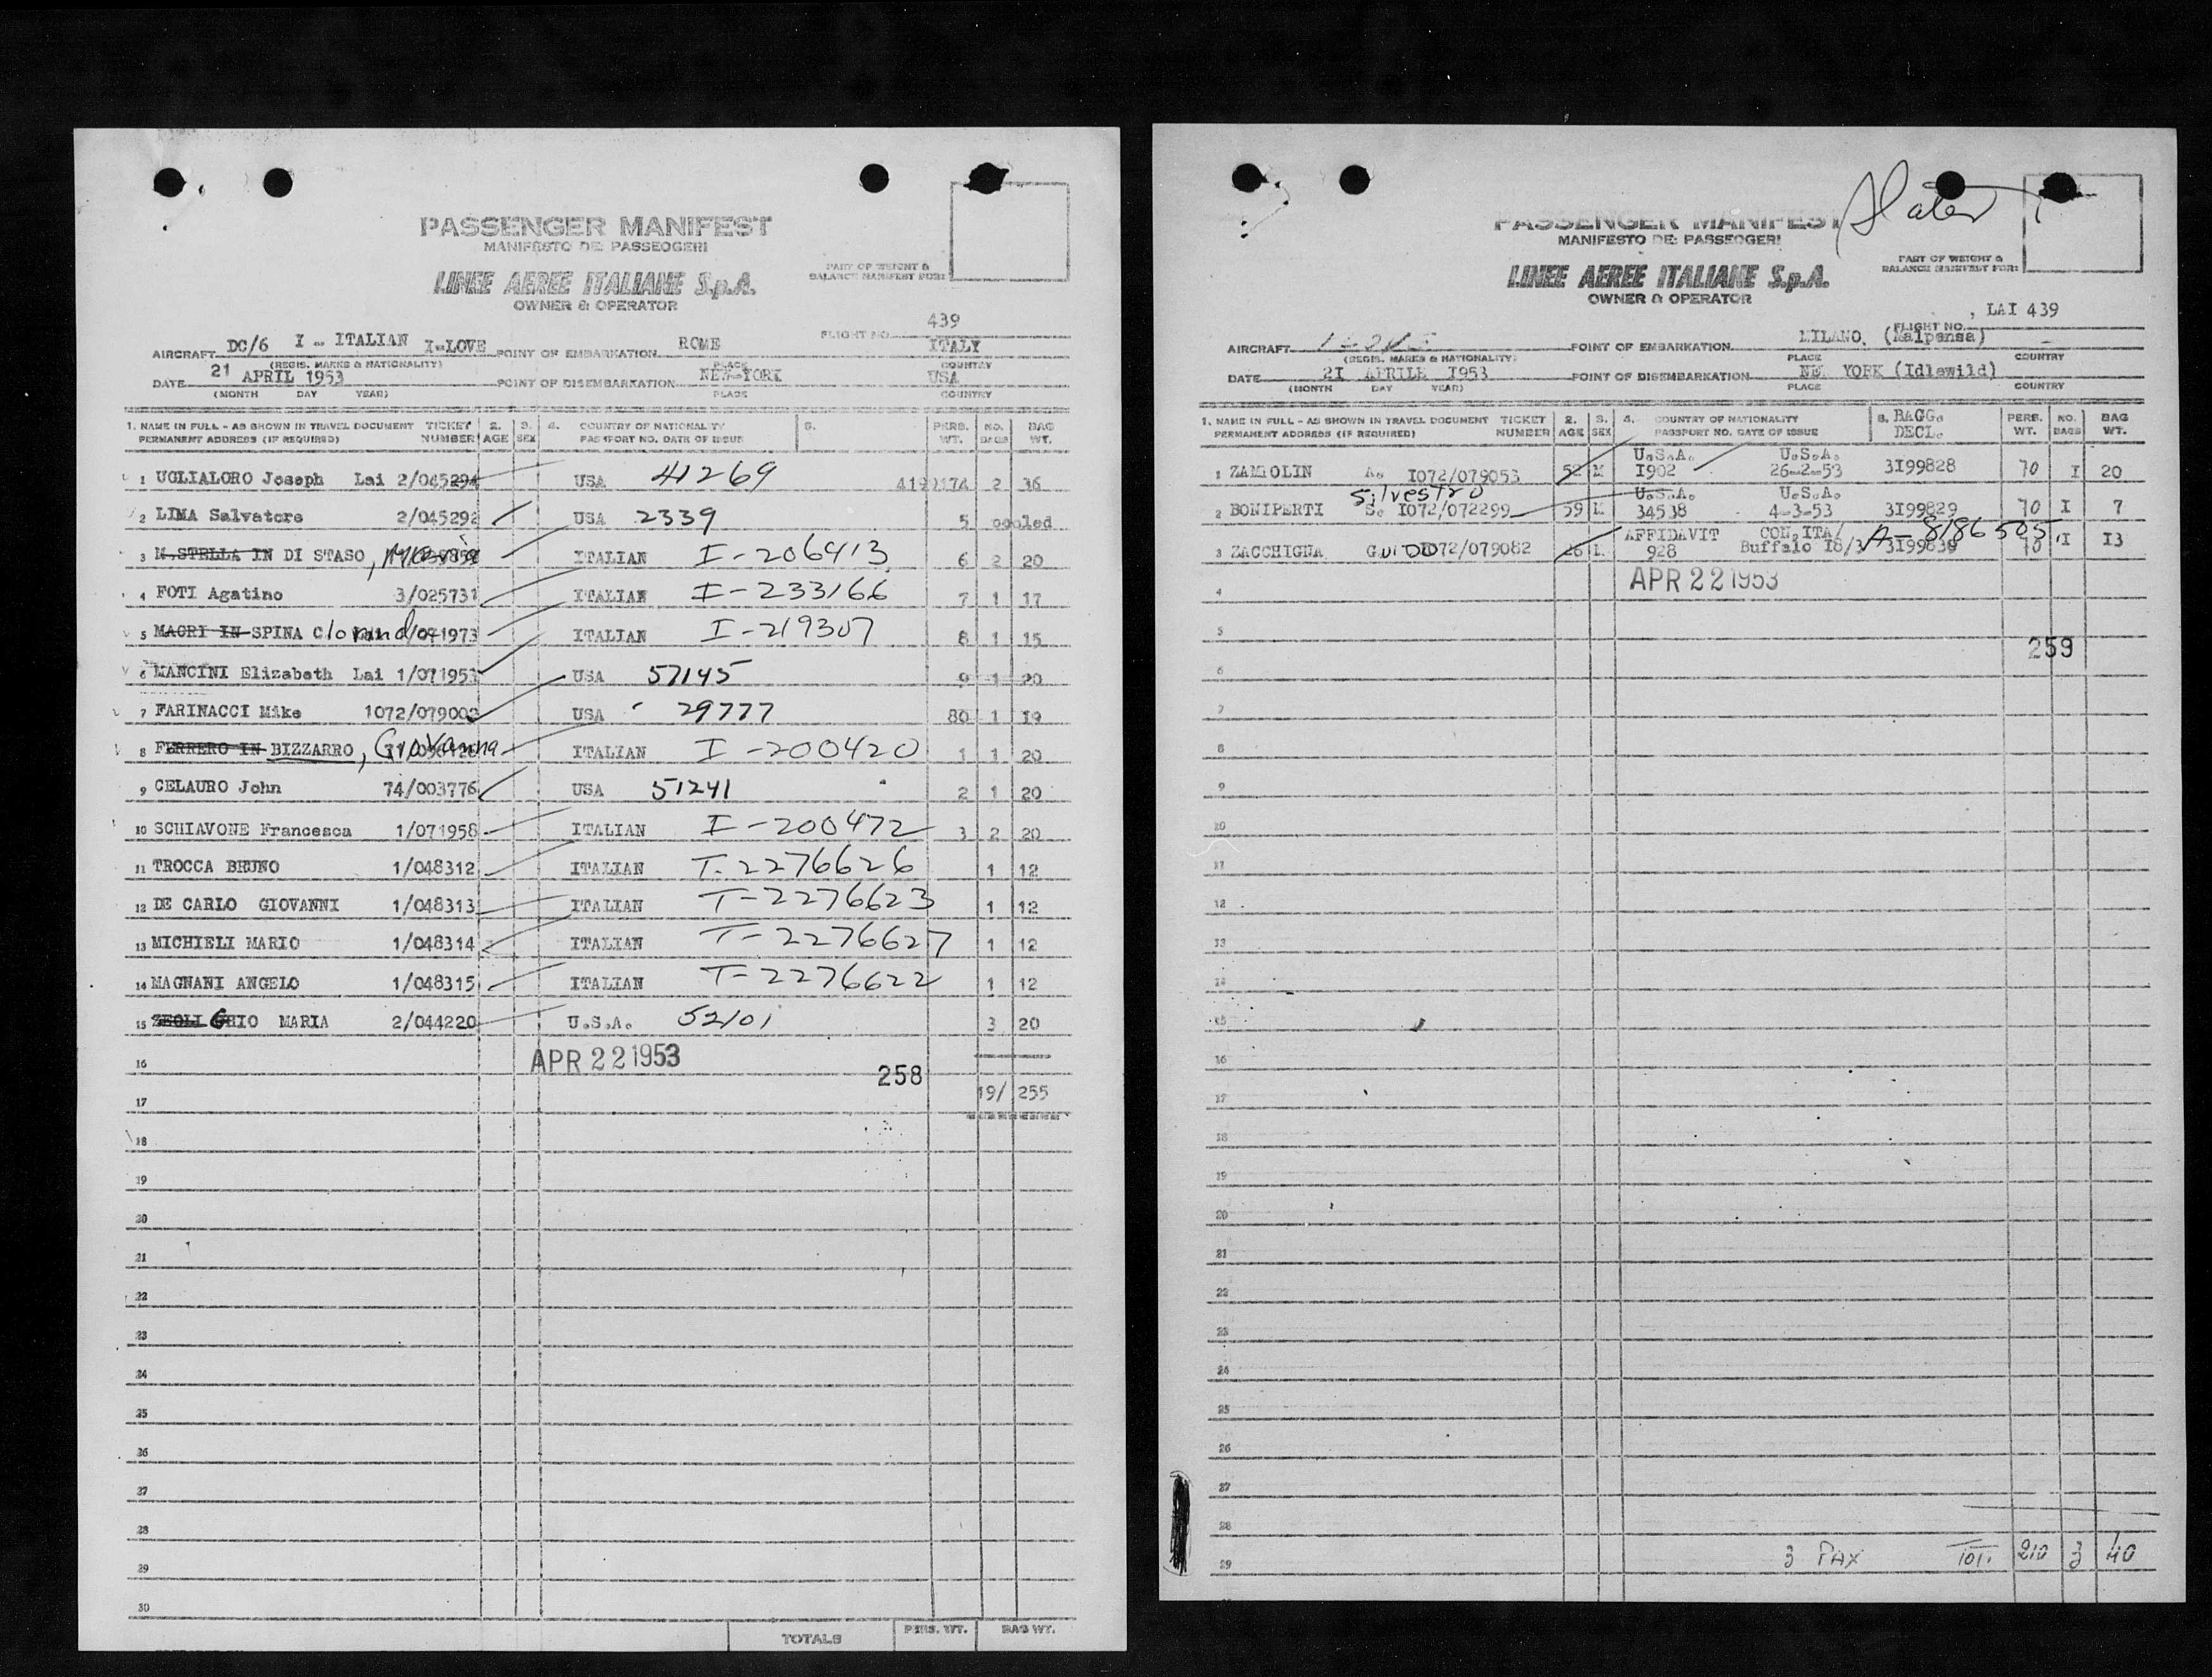 PASSENGER MANIFEST
MANIFESTO DEI PASSEGGERI
PART OF WEIGHT &
BALANCE MANIFEST FOR:
LINEE AEREE ITALIANE S.p.A.
OWNER & OPERATOR
AIRCRAFT DC/6 I - ITALIAN I-LOVE POINT OF EMBARKATION ROME FLIGHT NO. 439 ITALY
(REGIS. MARKS & NATIONALITY) PLACE COUNTRY
DATE 21 APRIL 1953 POINT OF DISEMBARKATION NEW-YORK USA
(MONTH DAY YEAR) PLACE COUNTRY
1. NAME IN FULL - AS SHOWN IN TRAVEL DOCUMENT TICKET 2. 3. 4. COUNTRY OF NATIONALITY 5. PERS. NO. BAG
PERMANENT ADDRESS (IF REQUIRED) NUMBER AGE SEX PASSPORT NO. DATE OF ISSUE WT. BAGS WT.
1 UGLIALORO Joseph Lai 2/045294 USA 41269 2 36
2 LIMA Salvatore 2/045292 USA 2339 5 pooled
3 M.STELLA IN DI STASO, Maria ITALIAN I-206413 6 2 20
4 FOTI Agatino 3/025731 ITALIAN I-233166 7 1 17
5 MAGRI IN SPINA Clorinda /071973 ITALIAN I-219307 8 1 15
6 MANCINI Elizabeth Lai 1/071953 USA 57145 9 1 20
7 FARINACCI Mike 1072/079003 USA 29777 80 1 19
8 FERRERO IN BIZZARRO, Giovanna ITALIAN I-200420 1 1 20
9 CELAURO John 74/003776 USA 51241 2 1 20
10 SCHIAVONE Francesca 1/071958 ITALIAN I-200472 3 2 20
11 TROCCA BRUNO 1/048312 ITALIAN T-2276626 1 12
12 DE CARLO GIOVANNI 1/048313 ITALIAN T-2276623 1 12
13 MICHIELI MARIO 1/048314 ITALIAN T-2276627 1 12
14 MAGNANI ANGELO 1/048315 ITALIAN T-2276622 1 12
15 GRIO MARIA 2/044220 U.S.A. 52101 3 20
16 APR 22 1953 258
17 19/ 255
18
19
20
21
22
23
24
25
26
27
28
29
30
TOTALS PERS. WT. BAG WT.
Slater
PASSENGER MANIFEST
MANIFESTO DEI PASSEGGERI
PART OF WEIGHT &
BALANCE MANIFEST FOR:
LINEE AEREE ITALIANE S.p.A.
OWNER & OPERATOR
LAI 439
FLIGHT NO.
AIRCRAFT POINT OF EMBARKATION MILANO, (Malpensa)
(REGIS. MARKS & NATIONALITY) PLACE COUNTRY
DATE 2I APRILE I953 POINT OF DISEMBARKATION NEW YORK (Idlewild)
(MONTH DAY YEAR) PLACE COUNTRY
1. NAME IN FULL - AS SHOWN IN TRAVEL DOCUMENT TICKET 2. 3. 4. COUNTRY OF NATIONALITY 5. BAGG. PERS. NO. BAG
PERMANENT ADDRESS (IF REQUIRED) NUMBER AGE SEX PASSPORT NO. DATE OF ISSUE DECL. WT. BAGS WT.
U.S.A. U.S.A.
1 ZAMOLIN A. I072/079053 52 M I902 26-2-53 3I99828 70 I 20
Silvestro U.S.A. U.S.A.
2 BONIPERTI S. I072/072299 59 M 34538 4-3-53 3I99829 70 I 7
AFFIDAVIT CON.ITA/ A-8186505
3 ZACCHIGNA GUIDO I072/079082 26 M 928 Buffalo I8/3 3I99830 70 I I3
4 APR 22 1953
5 259
6
7
8
9
10
11
12
13
14
15
16
17
18
19
20
21
22
23
24
25
26
27
28
29 3 PAX TOT. 210 3 40